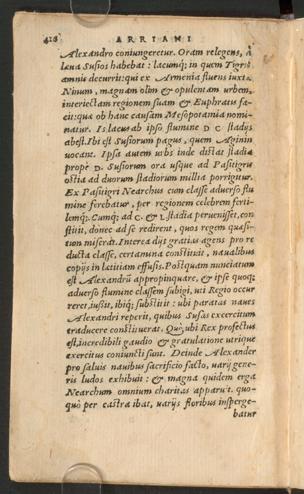 428 ARRIANI
Alexandro coniungeretur. Oram relegens, à
læua Susios habebat: lacumq́; in quem Tigris
amnis decurrit: qui ex Armenia fluens iuxta
Ninum, magnam olim & opulentam urbem,
interiectam regionem suam & Euphratis fa-
cit: quæ ob hanc causam Mesopotamia nomi-
natur. Is lacus ab ipso flumine D C stadijs
abest. Ibi est Susiorum pagus, quem Aginin
uocant. Ipsa autem urbs inde distat stadia
propè D. Susiorum ora usque ad Pasitigris
ostia ad duorum stadiorum millia porrigitur.
Ex Pasitigri Nearchus cum classe aduerso flu
mine ferebatur, per regionem celebrem ferti-
lemq́;. Cumq́; ad C. & L stadia peruenisset, con
stitit, donec ad se redirent, quos regem quæsi-
tum miserat. Interea dijs gratias agens pro re
ducta classe, certamina constituit, naualibus
copijs in lætitiam effusis. Postquam nunciatum
est Alexandrū appropinquare, & ipse quoq;
aduerso flumine classem subigi, ut Regio occur
reret, iußit, ibiq́; substitit: ubi paratas naues
Alexandri reperit, quibus Susas exercitum
traducere constituerat. Quò ubi Rex profectus
est, incredibili gaudio & gratulatione utrique
exercitus coniuncti sunt. Deinde Alexander
pro saluis nauibus sacrificio facto, uarij gene-
ris ludos exhibuit: & magna quidem erga
Nearchum omnium charitas apparuit. quo-
quò per castra ibat, uarijs floribus insperge-
batur